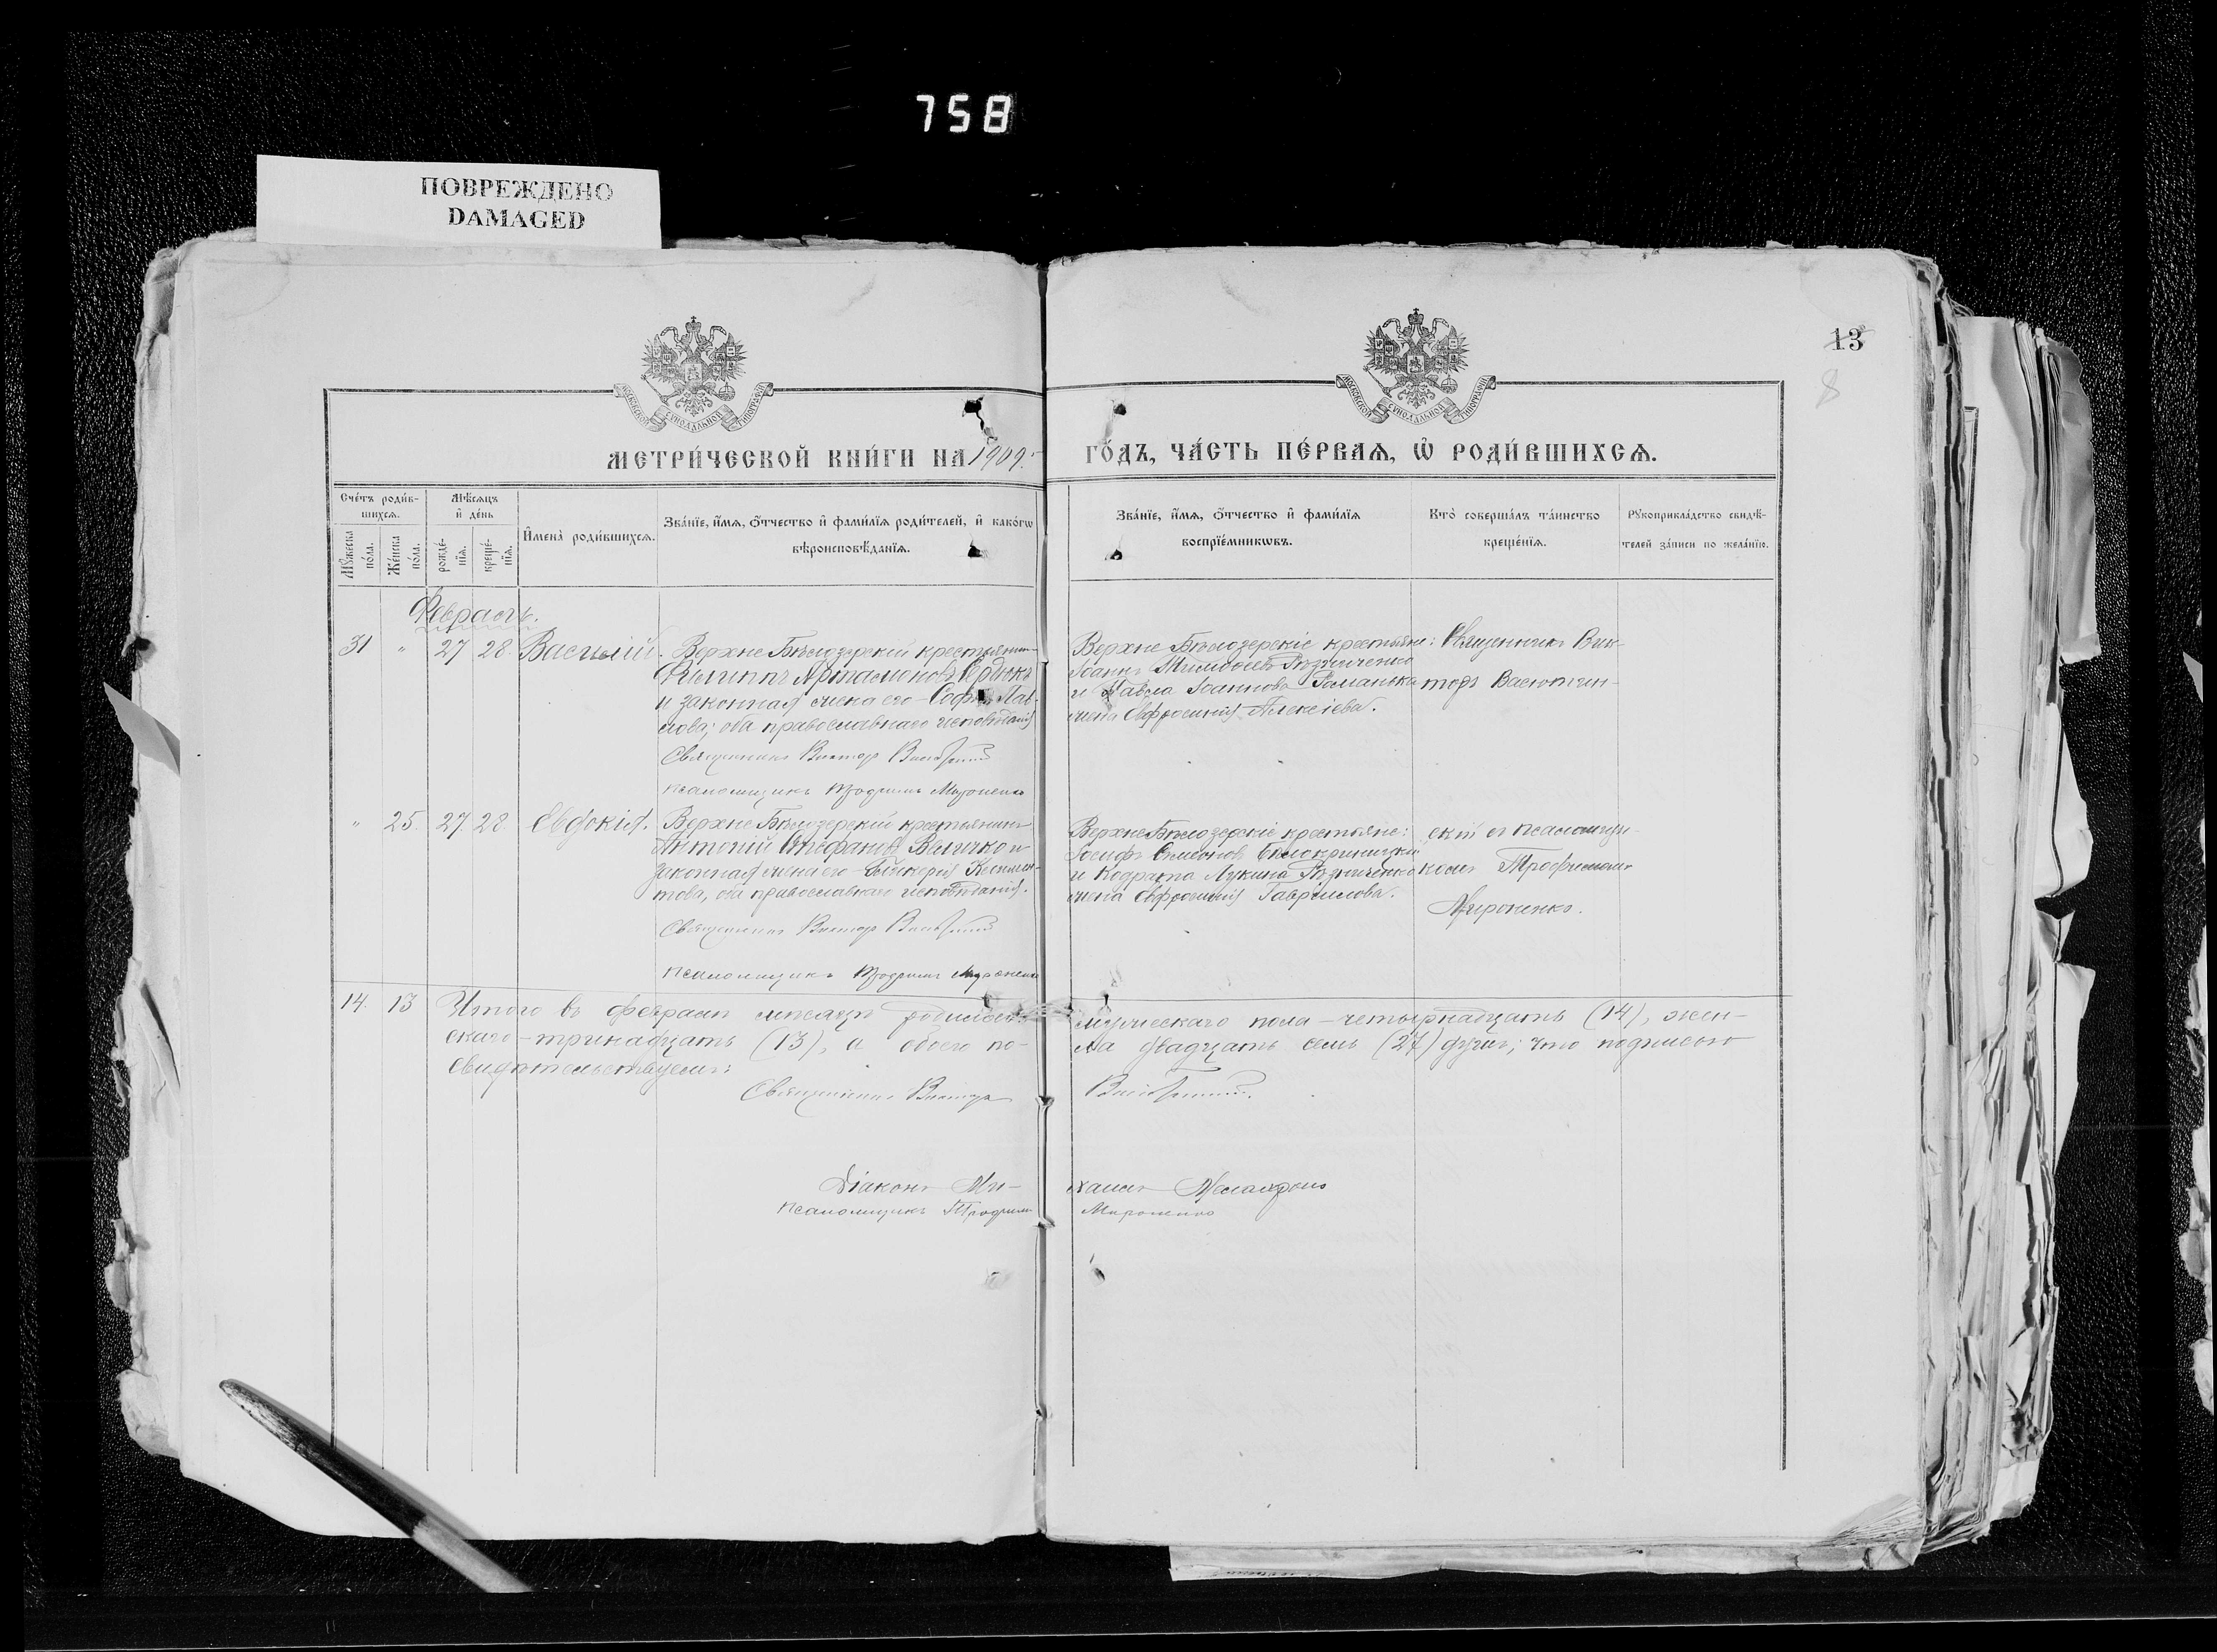 758
ПОВРЕЖДЕНО
DAMAGED
13
8
МОСКОВСКОЙ СУНОДАЛЬНОЙ ТИПОГРАФІИ
МОСКОВСКОЙ СУНОДАЛЬНОЙ ТИПОГРАФІИ
МЕТРИ́ЧЕСКОЙ КНИ́ГИ НА 1909 ГО́ДЪ, ЧА́СТЬ ПЕ́РВАѦ, Ѡ҆ РОДИ́ВШИХСѦ.
Сче́тъ роди́в-
шихсѧ.
Мꙋ́жеска
по́ла.
Же́нска
по́ла.
Мѣ́сѧцъ
и҆ де́нь
рожде́-
нїѧ.
креще́-
нїѧ.
И҆мена̀ роди́вшихсѧ.
Зва́нїе, и҆́мѧ, ѻ҆́тчество и҆ фами́лїѧ роди́телей, и҆ како́гѡ
вѣроисповѣ́данїѧ.
Зва́нїе, и҆́мѧ, ѻ҆́тчество и҆ фами́лїѧ
воспрїе́мникѡвъ.
Кто̀ соверша́лъ та́инство
креще́нїѧ.
Рꙋкоприкла́дство свидѣ́-
телей за́писи по жела́нїю.
Февраль.
31 " 27 28. Василій.
Верхне Бѣлозерскій крестьянинъ
Филиппъ Артамоновъ Сердюкъ
и законная жена его – Софія Пав-
лова; оба православнаго исповѣданія
Священникъ Викторъ
Псаломщикъ Трофимъ Мироненко
Верхне Бѣлозерскіе крестьяне:
Іоаннъ Резниченко
и Павла Іоаннова Романька
жена Евфросинія Алексіева.
Священникъ Вик-
торъ Васютин-
" 25. 27. 28. Евдокія.
Верхне Бѣлозерскій крестьянинъ
Антоній Стефановъ Величко и
законная жена его – Гликерія
това, оба православнаго исповѣданія.
Священникъ Викторъ
Псаломщикъ Трофимъ Мироненко
ВерхнеБѣлозерскіе крестьяне:
Іосифъ Симеоновъ Бѣлокриницкій
и Кодрата Лукина Резниченко
жена Евфросинія Гавриилова.
скій съ псаломщи-
комъ Трофимомъ
Мироненко.
14. 13 Итого въ февралѣ мѣсяцѣ родилось: мужескаго пола – четырнадцать (14), жен-
скаго – тринадцать (13), а обоего по- ла двадцать семь (27) душъ; что подписью
свидѣтельствуемъ:
Священникъ Викторъ
Діаконъ Ми- хаилъ
Псаломщикъ Трофимъ Мироненко